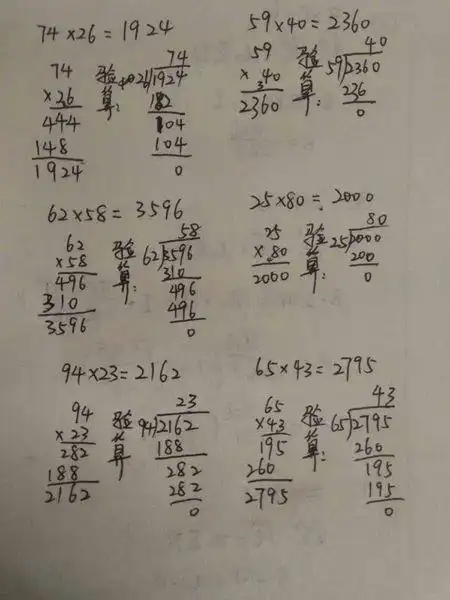 74×26=1924
74
×26
444
148
1924
验算:
74
26 1924
182
104
104
0
59×40=2360
59
×40
2360
验算:
40
59 2360
236
0
62×58=3596
62
×58
496
310
3596
验算:
58
62 3596
310
496
496
0
25×80=2000
25
×80
2000
验算:
80
25 2000
200
0
94×23=2162
94
×23
282
188
2162
验算
23
94 2162
188
282
282
0
65×43=2795
65
×43
195
260
2795
验算:
43
65 2795
260
195
195
0